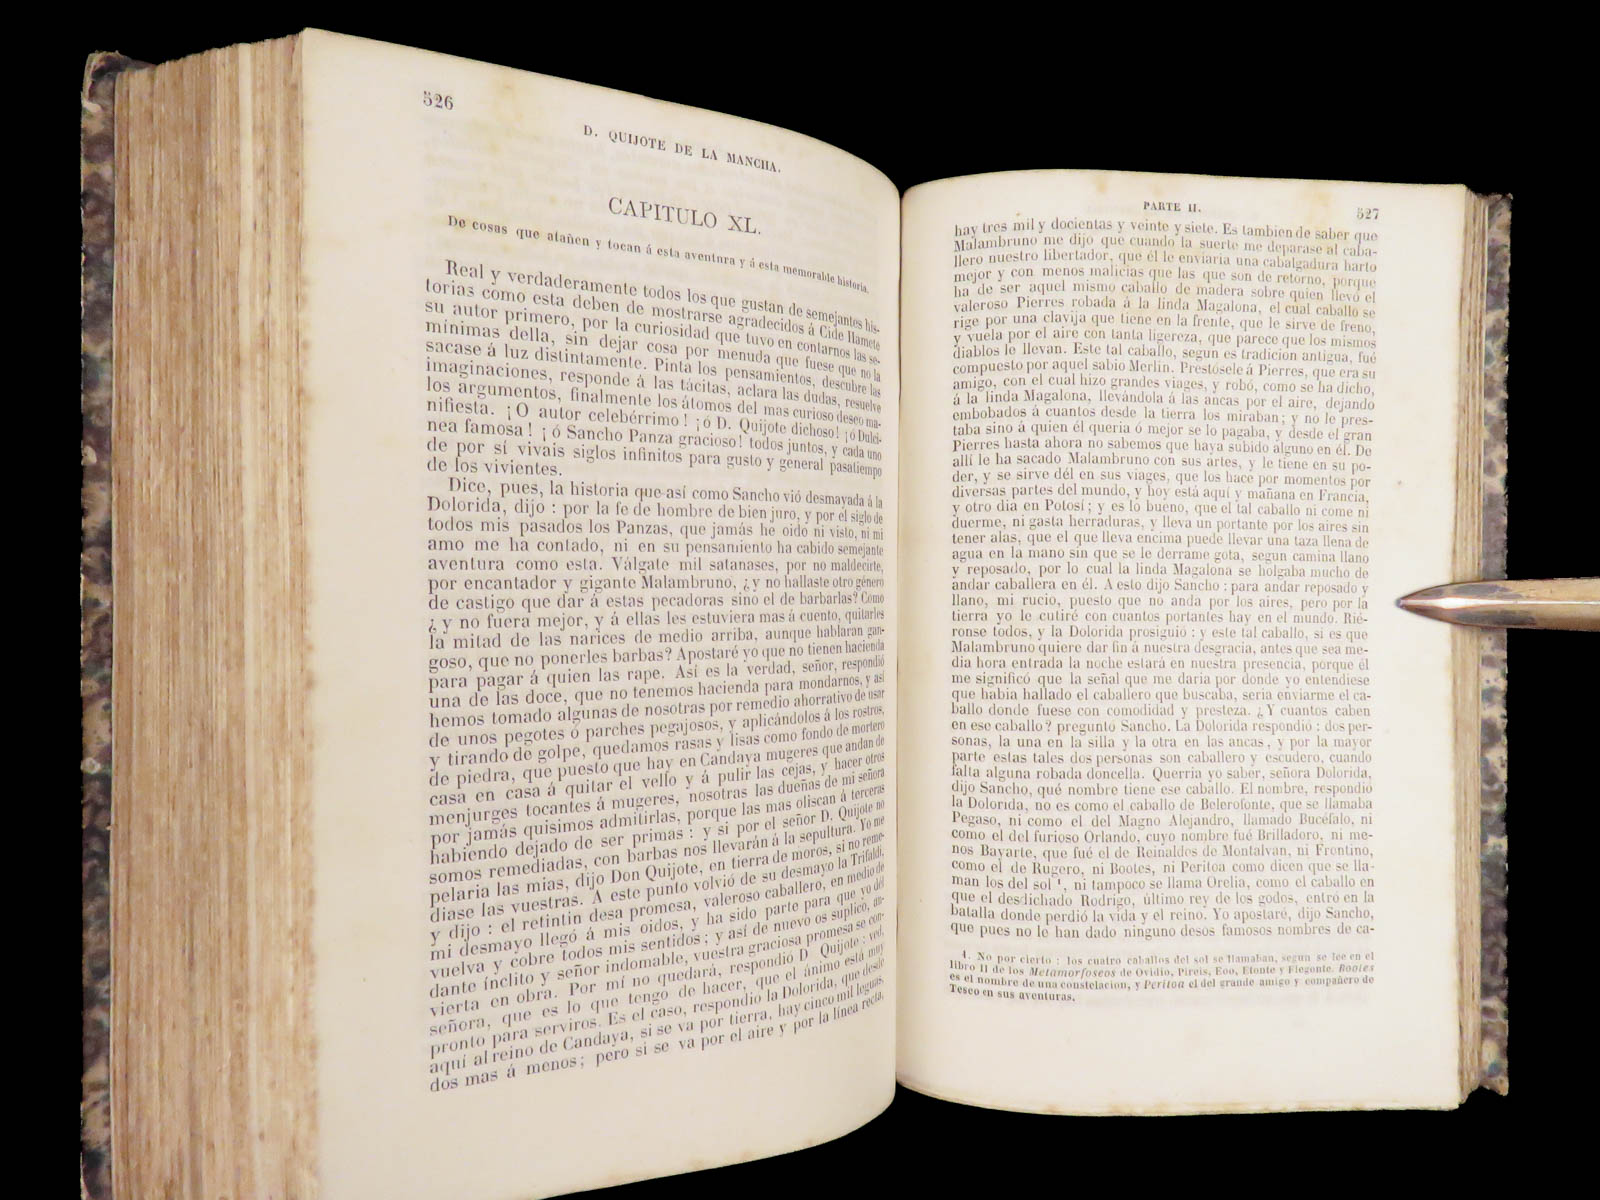 526
D. QUIJOTE DE LA MANCHA.
CAPITULO XL.
De cosas que atañen y tocan á esta aventura y á esta memorable historia.
Real y verdaderamente todos los que gustan de semejantes his-
torias como esta deben de mostrarse agradecidos á Cide Hamete
su autor primero, por la curiosidad que tuvo en contarnos las se-
mínimas della, sin dejar cosa por menuda que fuese que no la
sacase á luz distintamente. Pinta los pensamientos, descubre las
imaginaciones, responde á las tácitas, aclara las dudas, resuelve
los argumentos, finalmente los átomos del mas curioso deseo ma-
nifiesta. ¡O autor celebérrimo! ¡ó D. Quijote dichoso! ¡ó Dulci-
nea famosa! ¡ó Sancho Panza gracioso! todos juntos, y cada uno
de por sí vivais siglos infinitos para gusto y general pasatiempo
de los vivientes.
Dice, pues, la historia que así como Sancho vió desmayada á la
Dolorida, dijo : por la fe de hombre de bien juro, y por el siglo de
todos mis pasados los Panzas, que jamás he oido ni visto, ni mi
amo me ha contado, ni en su pensamiento ha cabido semejante
aventura como esta. Válgate mil satanases, por no maldecirte,
por encantador y gigante Malambruno, ¿y no hallaste otro género
de castigo que dar á estas pecadoras sino el de barbarlas? Cómo
¿y no fuera mejor, y á ellas les estuviera mas á cuento, quitarles
la mitad de las narices de medio arriba, aunque hablaran gan-
goso, que no ponerles barbas? Apostaré yo que no tienen hacienda
para pagar á quien las rape. Así es la verdad, señor, respondió
una de las doce, que no tenemos hacienda para mondarnos, y así
hemos tomado algunas de nosotras por remedio ahorrativo de usar
de unos pegotes ó parches pegajosos, y aplicándolos á los rostros,
y tirando de golpe, quedamos rasas y lisas como fondo de mortero
de piedra, que puesto que hay en Candaya mugeres que andan de
casa en casa á quitar el vello y á pulir las cejas, y hacer otros
menjurges tocantes á mugeres, nosotras las dueñas de mi señora
por jamás quisimos admitirlas, porque las mas oliscan á terceras
habiendo dejado de ser primas : y si por el señor D. Quijote no
somos remediadas, con barbas nos llevarán á la sepultura. Yo me
pelaria las mias, dijo Don Quijote, en tierra de moros, si no reme-
diase las vuestras. A este punto volvió de su desmayo la Trifaldi,
y dijo : el retintin desa promesa, valeroso caballero, en medio de
mi desmayo llegó á mis oidos, y ha sido parte para que yo dél
vuelva y cobre todos mis sentidos; y así de nuevo os suplico, an-
dante ínclito y señor indomable, vuestra graciosa promesa se con-
vierta en obra. Por mí no quedará, respondió D Quijote : ved,
señora, que es lo que tengo de hacer, que el ánimo está muy
pronto para serviros. Es el caso, respondio la Dolorida, que desde
aquí al reino de Candaya, si se va por tierra, hay cinco mil leguas,
dos mas á menos; pero si se va por el aire y por la línea recta,
PARTE II.
527
hay tres mil y docientas y veinte y siete. Es tambien de saber que
Malambruno me dijo que cuando la suerte me deparase al caba-
llero nuestro libertador, que él le enviaria una cabalgadura harto
mejor y con menos malicias que las que son de retorno, porque
ha de ser aquel mismo caballo de madera sobre quien llevó el
valeroso Pierres robada á la linda Magalona, el cual caballo se
rige por una clavija que tiene en la frente, que le sirve de freno,
y vuela por el aire con tanta ligereza, que parece que los mismos
diablos le llevan. Este tal caballo, segun es tradicion antigua, fué
compuesto por aquel sabio Merlin. Prestósele á Pierres, que era su
amigo, con el cual hizo grandes viages, y robó, como se ha dicho,
á la linda Magalona, llevándola á las ancas por el aire, dejando
embobados á cuantos desde la tierra los miraban; y no le pres-
taba sino á quien él queria ó mejor se lo pagaba, y desde el gran
Pierres hasta ahora no sabemos que haya subido alguno en él. De
allí le ha sacado Malambruno con sus artes, y le tiene en su po-
der, y se sirve dél en sus viages, que los hace por momentos por
diversas partes del mundo, y hoy está aquí y mañana en Francia,
y otro dia en Potosí; y es lo bueno, que el tal caballo ni come ni
duerme, ni gasta herraduras, y lleva un portante por los aires sin
tener alas, que el que lleva encima puede llevar una taza llena de
agua en la mano sin que se le derrame gota, segun camina llano
y reposado, por lo cual la linda Magalona se holgaba mucho de
andar caballera en él. A esto dijo Sancho : para andar reposado y
llano, mi rucio, puesto que no anda por los aires, pero por la
tierra yo le cutiré con cuantos portantes hay en el mundo. Rié-
ronse todos, y la Dolorida prosiguió : y este tal caballo, si es que
Malambruno quiere dar fin á nuestra desgracia, antes que sea me-
dia hora entrada la noche estará en nuestra presencia, porque él
me significó que la señal que me daria por donde yo entendiese
que habia hallado el caballero que buscaba, seria enviarme el ca-
ballo donde fuese con comodidad y presteza. ¿Y cuantos caben
en ese caballo? preguntó Sancho. La Dolorida respondió : dos per-
sonas, la una en la silla y la otra en las ancas, y por la mayor
parte estas tales dos personas son caballero y escudero, cuando
falta alguna robada doncella. Querria yo saber, señora Dolorida,
dijo Sancho, qué nombre tiene ese caballo. El nombre, respondió
la Dolorida, no es como el caballo de Belerofonte, que se llamaba
Pegaso, ni como el del Magno Alejandro, llamado Bucéfalo, ni
como el del furioso Orlando, cuyo nombre fué Brilladoro, ni me-
nos Bayarte, que fué el de Reinaldos de Montalvan, ni Frontino,
como el de Rugero, ni Bootes, ni Peritoa como dicen que se lla-
man los del sol ¹, ni tampoco se llama Orelia, como el caballo en
que el desdichado Rodrigo, último rey de los godos, entró en la
batalla donde perdió la vida y el reino. Yo apostaré, dijo Sancho,
que pues no le han dado ninguno desos famosos nombres de ca-
1. No por cierto : los cuatro caballos del sol se llamaban, segun se lee en el
libro II de los Metamorfoseos de Ovidio, Pireis, Eoo, Etonte y Flegonte. Bootes
es el nombre de una constelacion, y Peritoa el del grande amigo y compañero de
Teseo en sus aventuras.